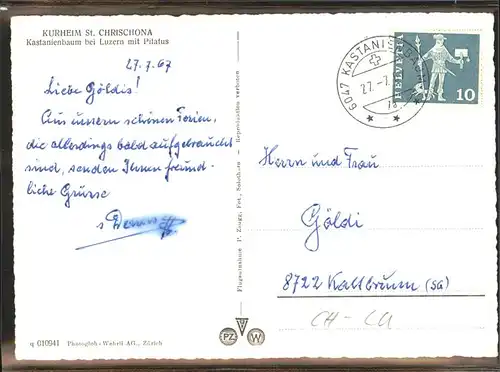 KURHEIM St. CHRISCHONA
Kastanienbaum bei Luzern mit Pilatus
27.7.67
Liebe Göldis!
Aus unsern schönen Ferien,
die allerdings bald aufgebraucht
sind, senden Ihnen freund-
liche Grüsse
s
q 010941 Photoglob-Wehrli AG., Zürich
Flugaufnahme P. Zaugg, Fot., Solothurn — Reproduktion verboten
PZ W
6047 KASTANIENBAUM
27.-7.
HELVETIA
10
Herrn und Frau
Göldi
8722 Kaltbrunn (SG)
CH - LU